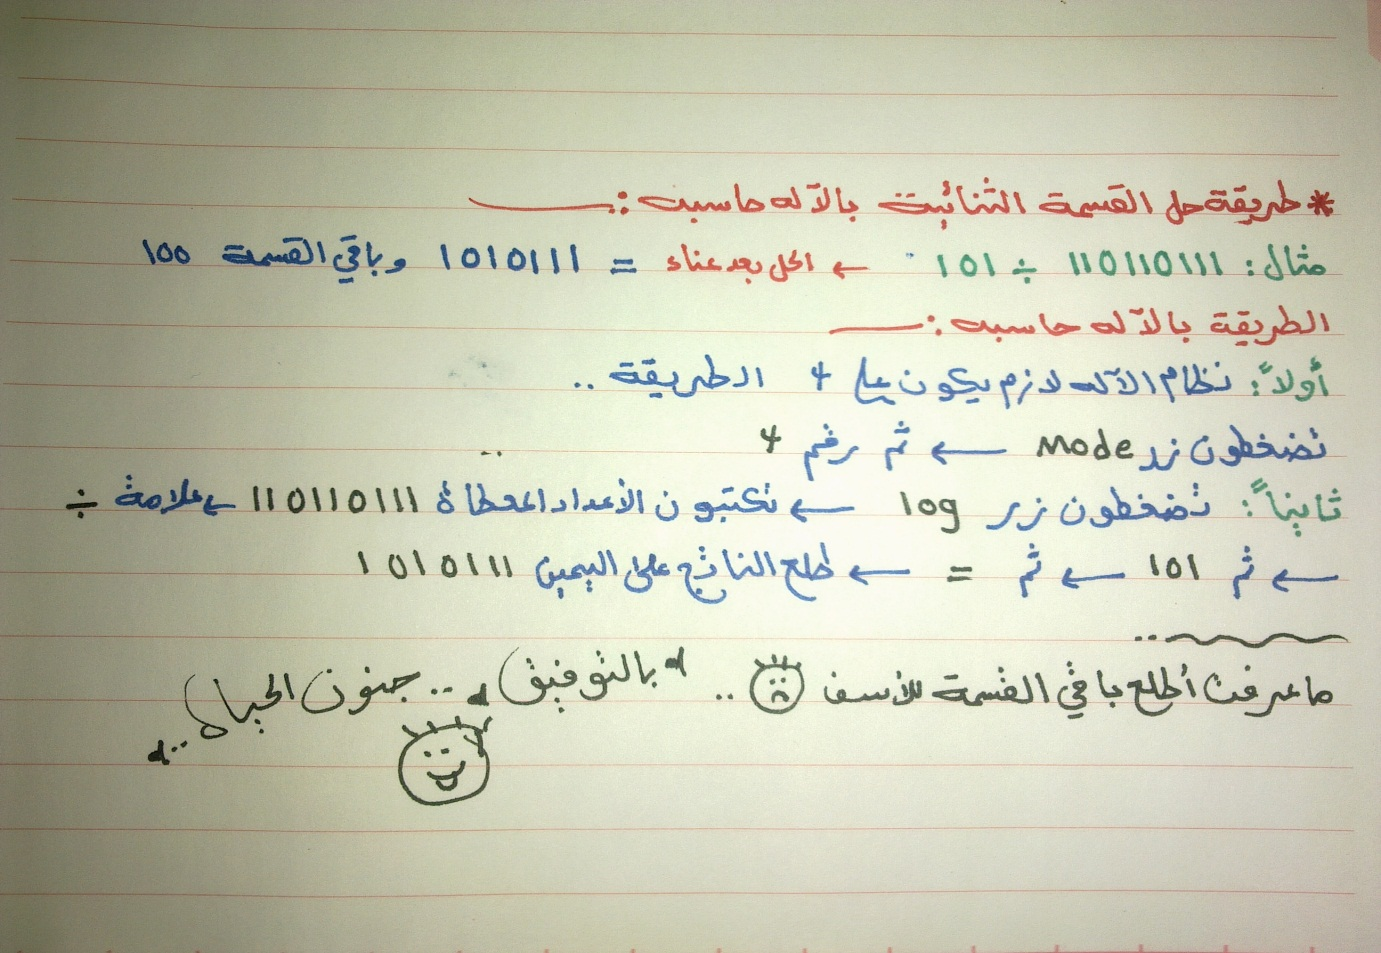 * طريقة حل القسمة الثنائية بالآله حاسبه :ـ
مثال : 110110111 ÷ 101 ← الحل بعد عناء = 1010111 وباقي القسمة 100
الطريقة بالآله حاسبه :ـ
أولاً : نظام الآله لازم يكون على 4 الطريقة ..
تضغطون زر mode ← ثم رقم 4 ..
ثانياً : تضغطون زر log ← تكتبون الأعداد المعطاة 110110111 ← علامة ÷
← ثم 101 ← ثم = ← طلع الناتج على اليمين 1010111
ماعرفت أطلع باقي القسمة للأسف .. بالتوفيق .. جنون الحياة ..